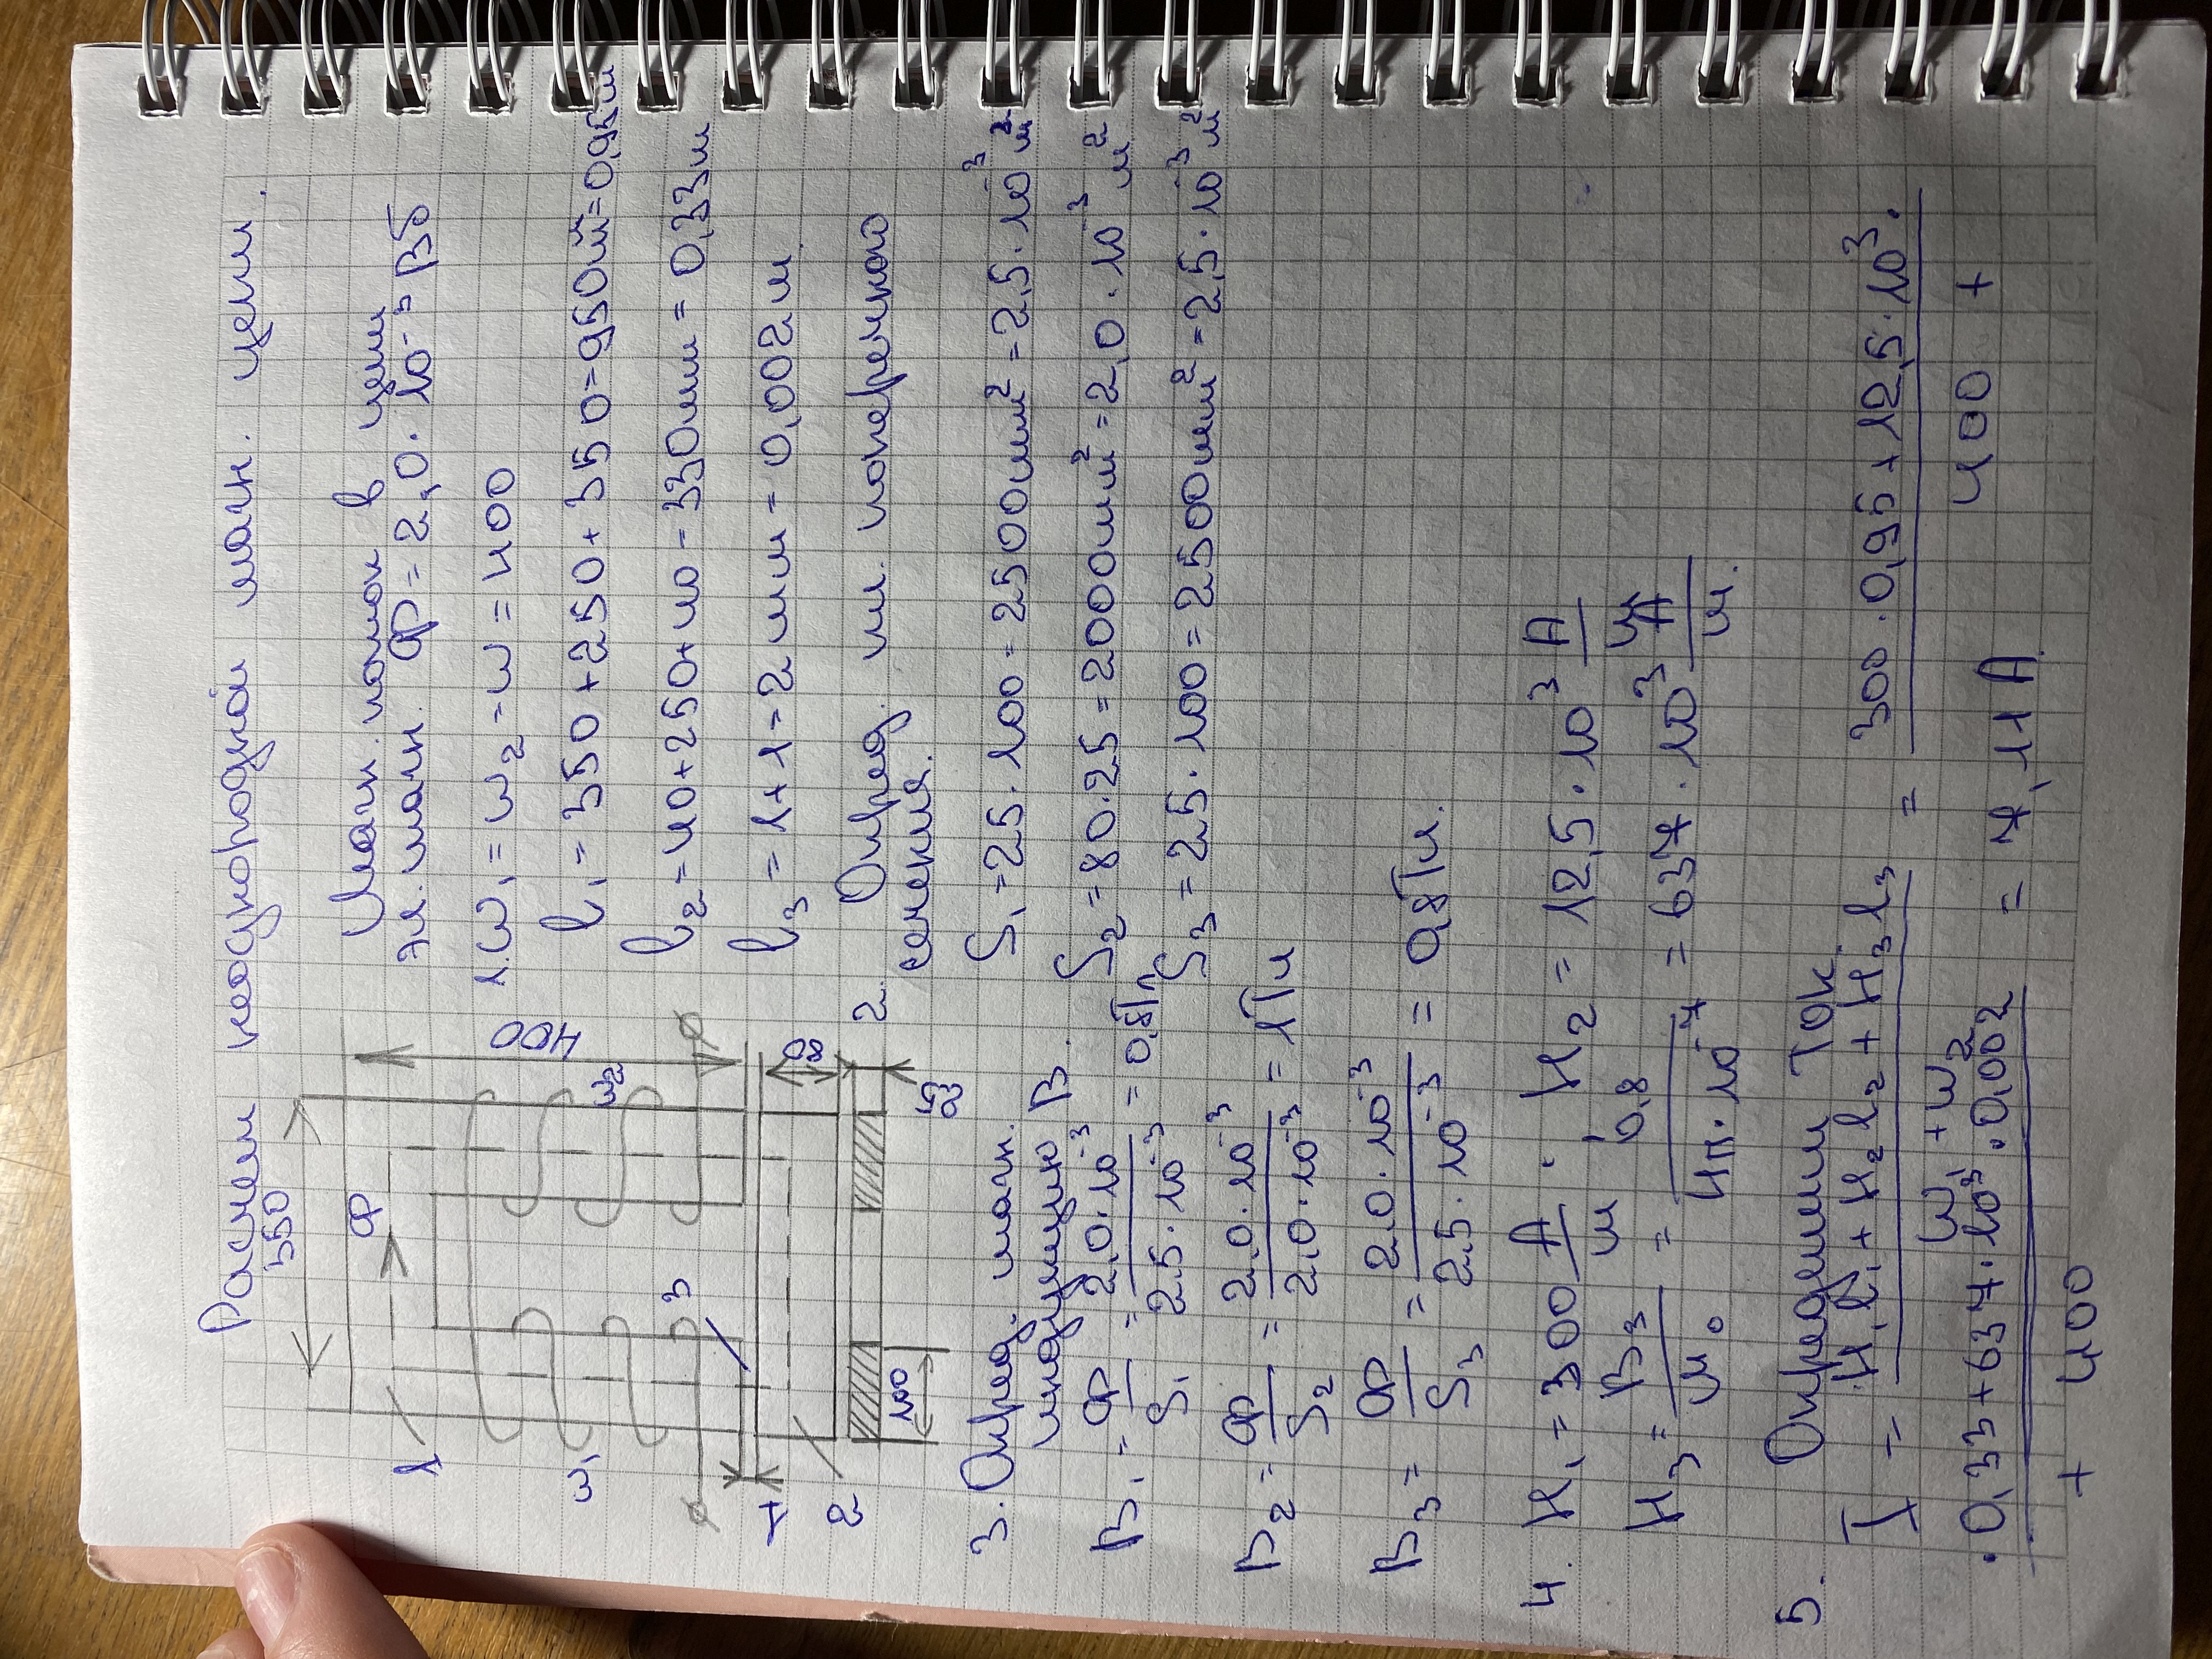 Расчет неоднородной магн. цепи.
350
Ф
400
1
w₁
w₂
3
80
1
2
100
25
Магн. поток в цепи
эл. магн. Ф = 2,0 · 10⁻³ Вб
1. w₁ = w₂ = w = 400
l₁ = 350 + 250 + 350 = 950мм = 0,95м
l₂ = 40 + 250 + 40 = 330мм = 0,33м
l₃ = 1 + 1 = 2мм = 0,002м.
2. Опред. пл. поперечного
сечения.
S₁ = 25 · 100 = 2500мм² = 2,5 · 10⁻³ м²
S₂ = 80 · 25 = 2000мм² = 2,0 · 10⁻³ м²
S₃ = 25 · 100 = 2500мм² = 2,5 · 10⁻³ м²
3. Опред. магн.
индукцию B.
B₁ = Ф/S₁ = 2,0 · 10⁻³/2,5 · 10⁻³ = 0,8Тл
B₂ = Ф/S₂ = 2,0 · 10⁻³/2,0 · 10⁻³ = 1Тл
B₃ = Ф/S₃ = 2,0 · 10⁻³/2,5 · 10⁻³ = 0,8Тл.
4. H₁ = 300 А/м. H₂ = 12,5 · 10³ А/м
H₃ = B₃/μ₀ = 0,8/4π · 10⁻⁷ = 637 · 10³ А/м.
5. Определим ток
I = H₁l₁ + H₂l₂ + H₃l₃/w₁ + w₂ = 300 · 0,95 + 12,5 · 10³ ·/400 +
· 0,33 + 637 · 10³ · 0,002/+ 400 = 7,11 А.